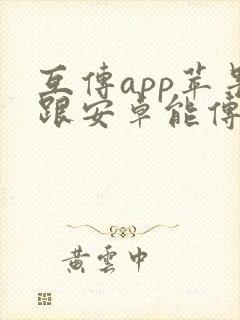 互傳app苹果
跟安卓能傳
黃雲中